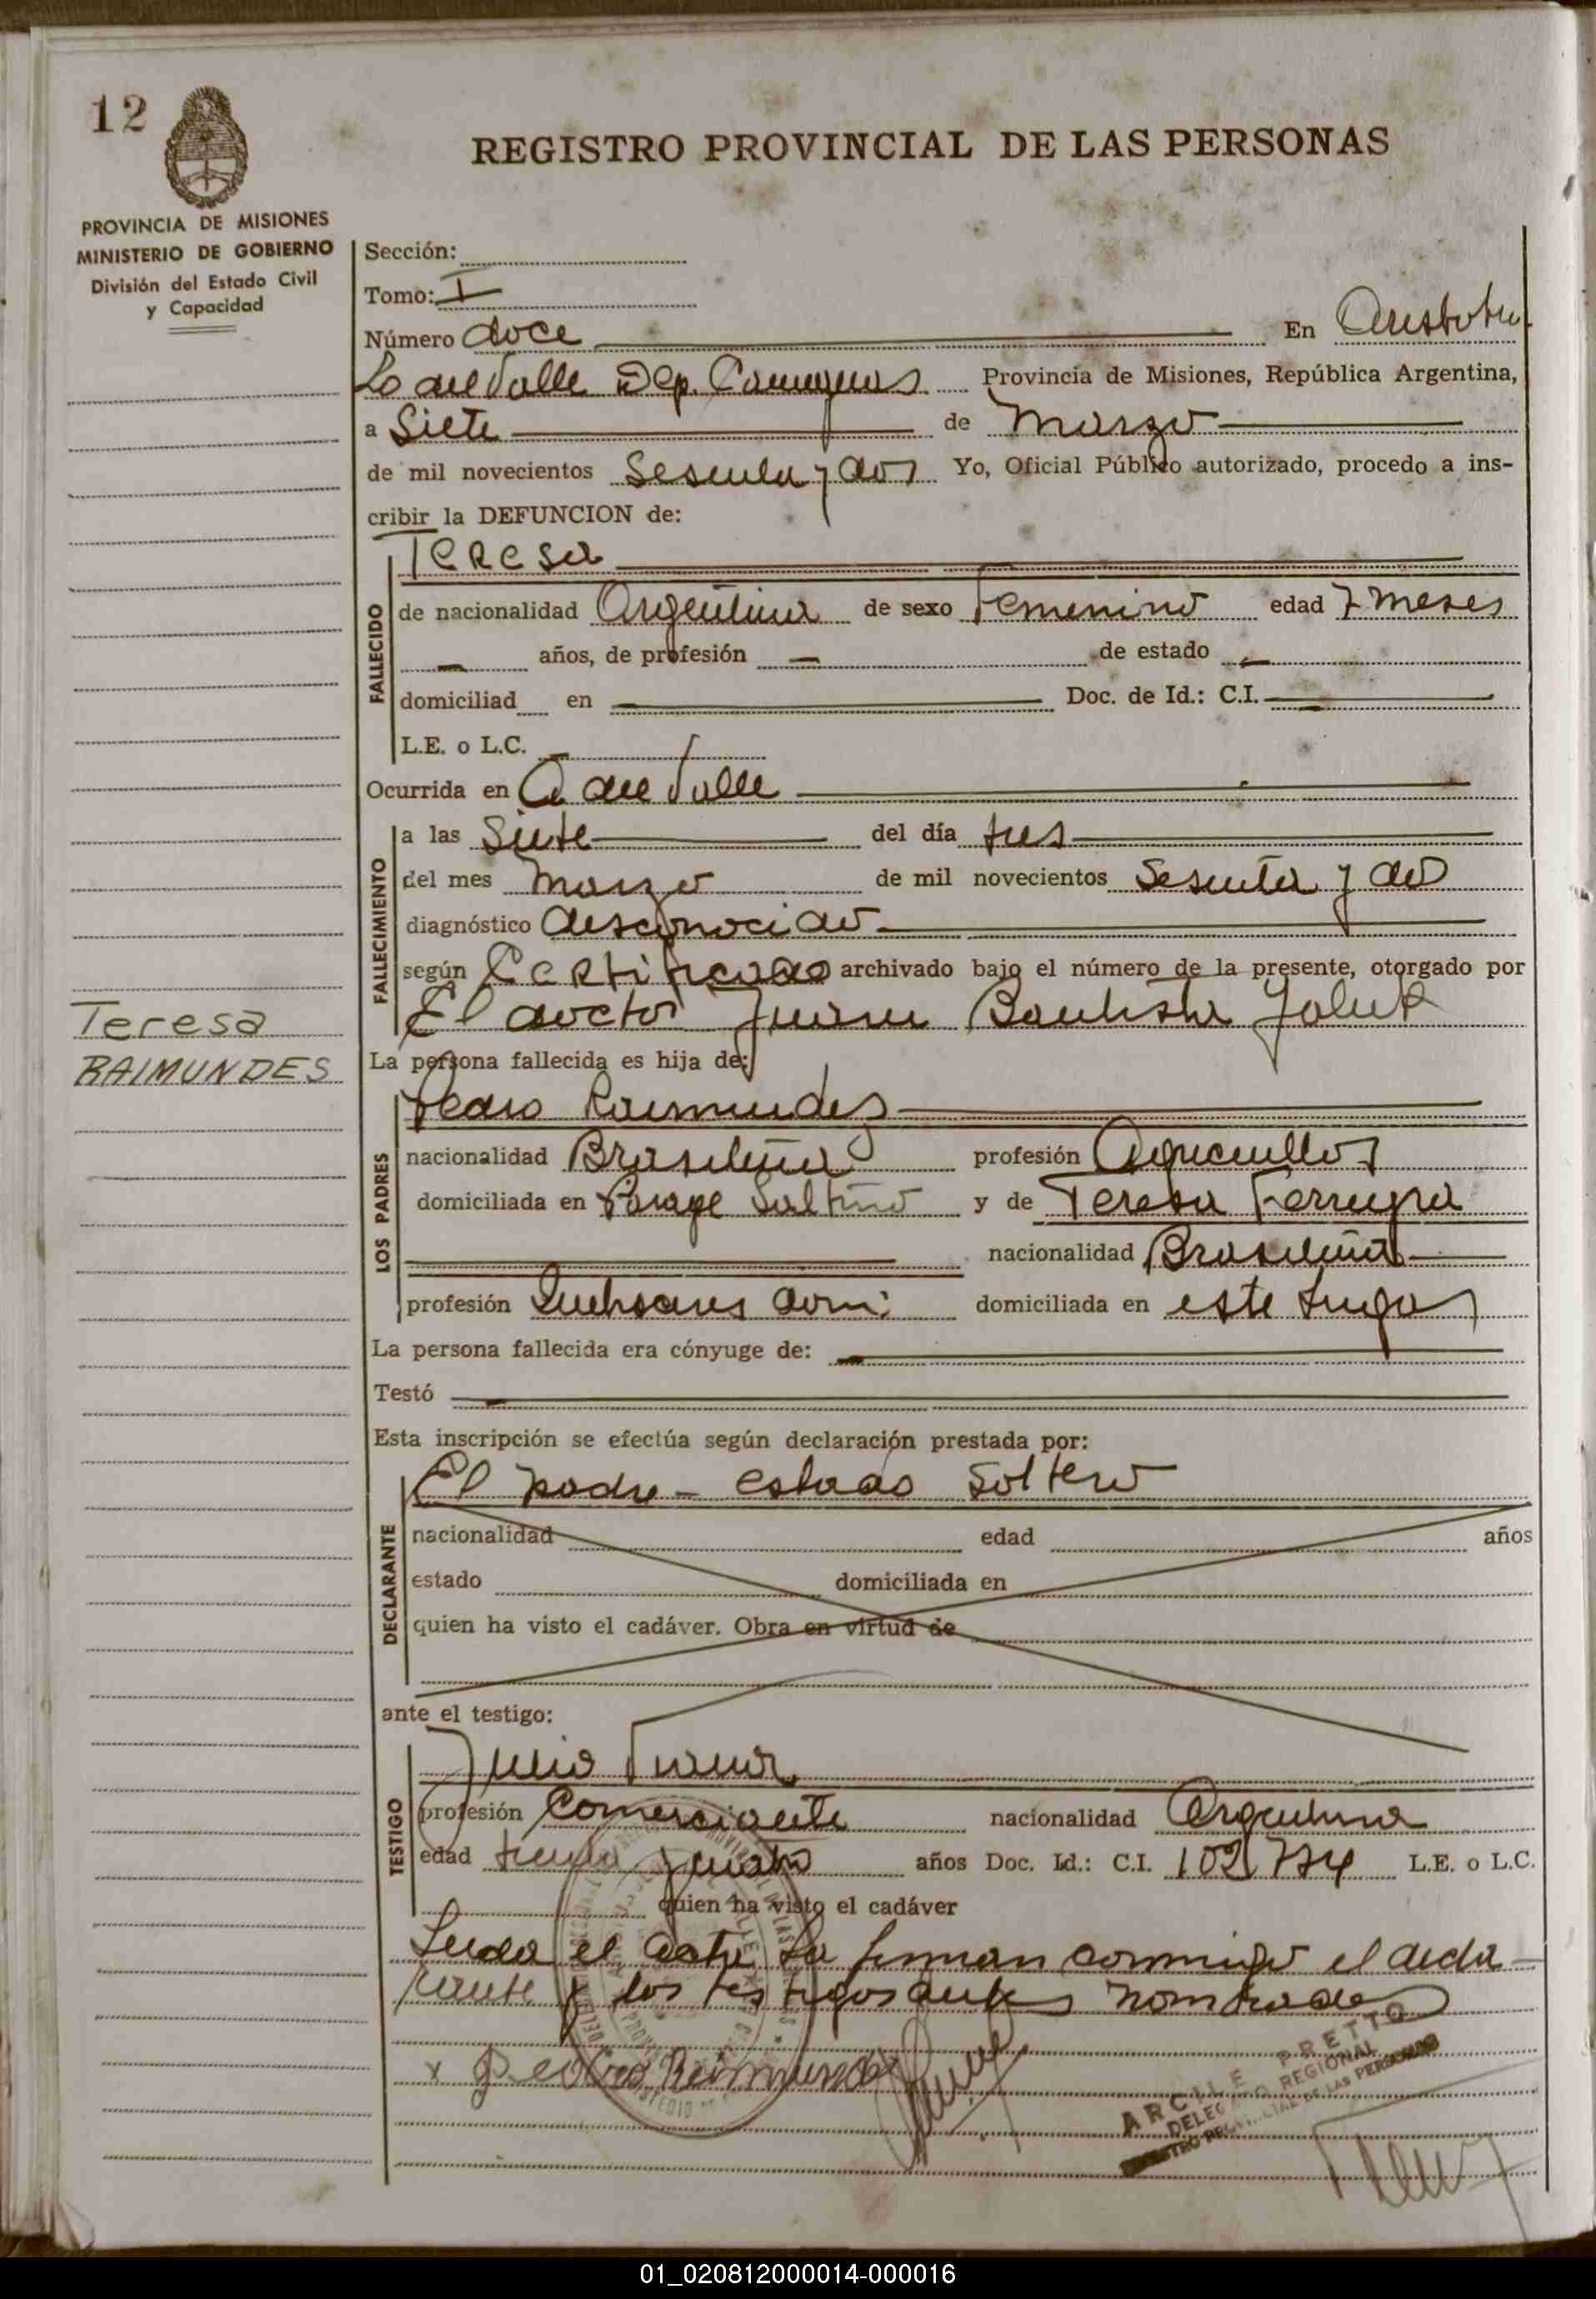 12
REGISTRO PROVINCIAL DE LAS PERSONAS
PROVINCIA DE MISIONES
MINISTERIO DE GOBIERNO
División del Estado Civil
y Capacidad
Sección:
Tomo: I
Número doce En Aristobu
lo del Valle Dep. Cainguas Provincia de Misiones, República Argentina,
a Siete de Marzo
de mil novecientos Sesenta y dos Yo, Oficial Público autorizado, procedo a ins-
cribir la DEFUNCION de:
Teresa
FALLECIDO
de nacionalidad Argentina de sexo Femenino edad 7 meses
— años, de profesión — de estado —
domiciliad en — Doc. de Id.: C.I. —
L.E. o L.C. —
Ocurrida en A. del Valle
FALLECIMIENTO
a las Siete del día tres
del mes Marzo de mil novecientos Sesenta y dos
diagnóstico desconocido
según Certificado archivado bajo el número de la presente, otorgado por
El doctor Juan Bautista
Teresa
RAIMUNDES
La persona fallecida es hija de:
LOS PADRES
Pedro Raimundez
nacionalidad Brasileña profesión Agricultor
domiciliada en Paraje Saltiño y de Teresa Ferreyra
nacionalidad Brasileña
profesión Quehaceres dom: domiciliada en este lugar
La persona fallecida era cónyuge de: —
Testó —
Esta inscripción se efectúa según declaración prestada por:
DECLARANTE
El padre - estado Soltero
nacionalidad edad años
estado domiciliada en
quien ha visto el cadáver. Obra en virtud de
ante el testigo:
TESTIGO
Julio
profesión Comerciante nacionalidad Argentina
edad treinta y cuatro años Doc. Id.: C.I. 102774 L.E. o L.C.
quien ha visto el cadáver
Leida el Acta La firman conmigo el decla-
rante y los testigos antes nombrados
x Pedro Reimundes
ARCILE PRETTO
DELEGADO REGIONAL
REGISTRO PROVINCIAL DE LAS PERSONAS
01_020812000014-000016